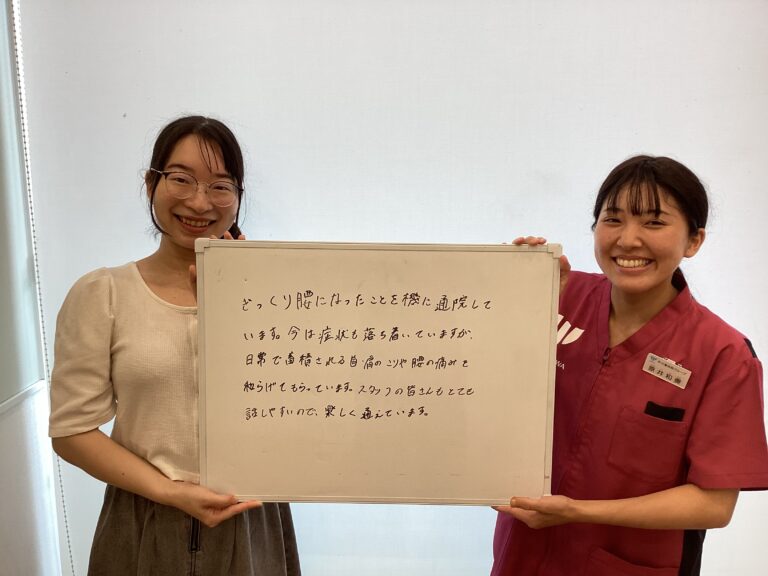 ぎっくり腰になったことを機に通院して
います。今は症状も落ち着いていますが、
日常で蓄積される首・肩のこりや腰の痛みを
和らげてもらっています。スタッフの皆さんもとても
話しやすいので、楽しく通えています。